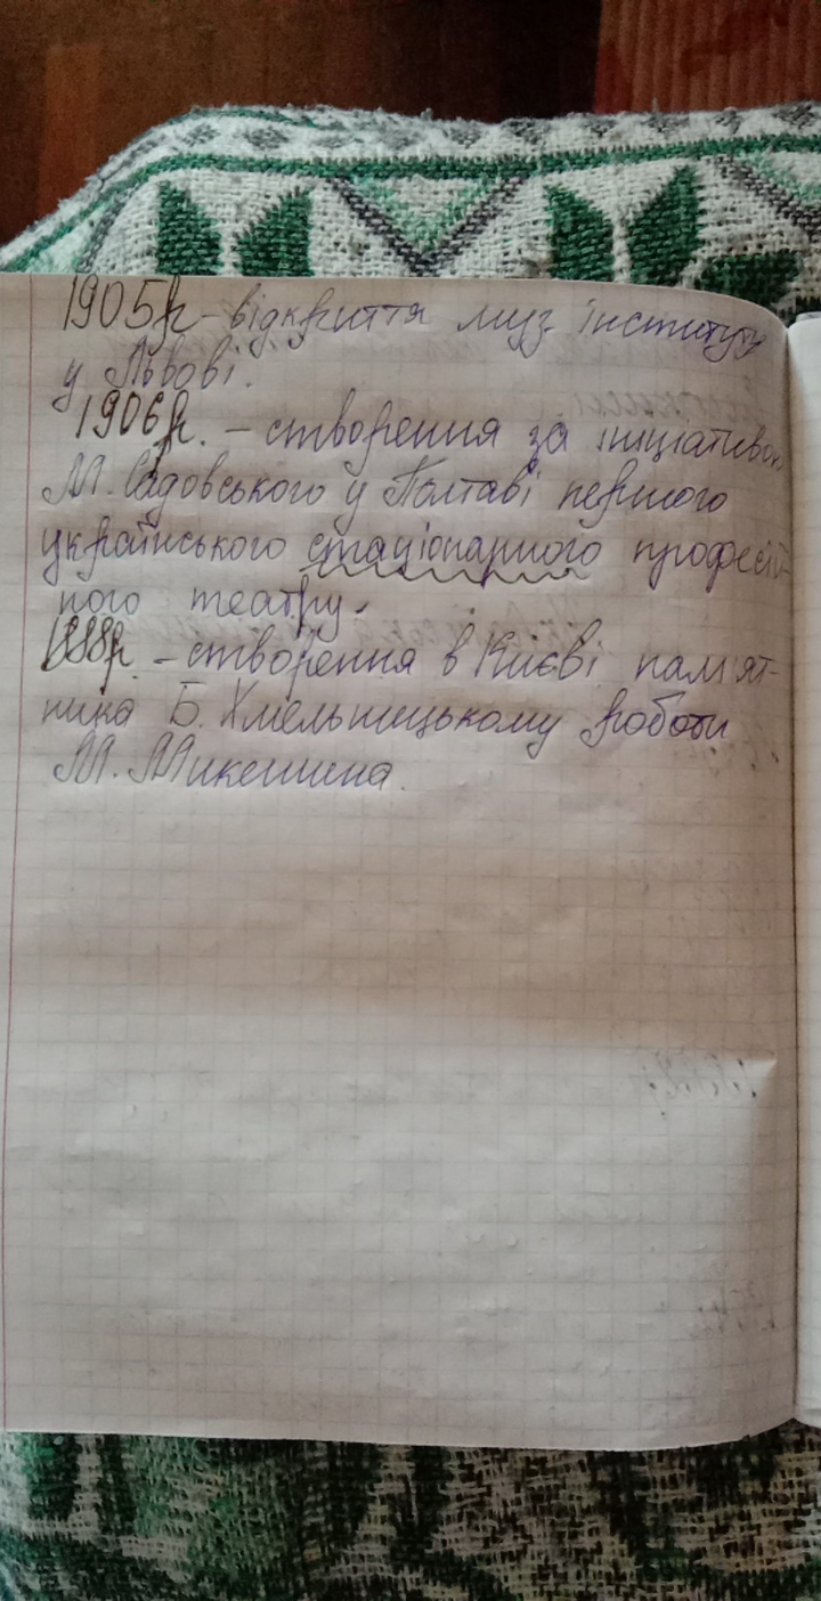 1905р - відкриття муз інституту
у Львові.
1906р. - створення за ініціативою
М. Садовського у Полтаві першого
українського стаціонарного професій-
ного театру.
1888р. - створення в Києві пам'ят-
ника Б. Хмельницькому роботи
М. Микешина.